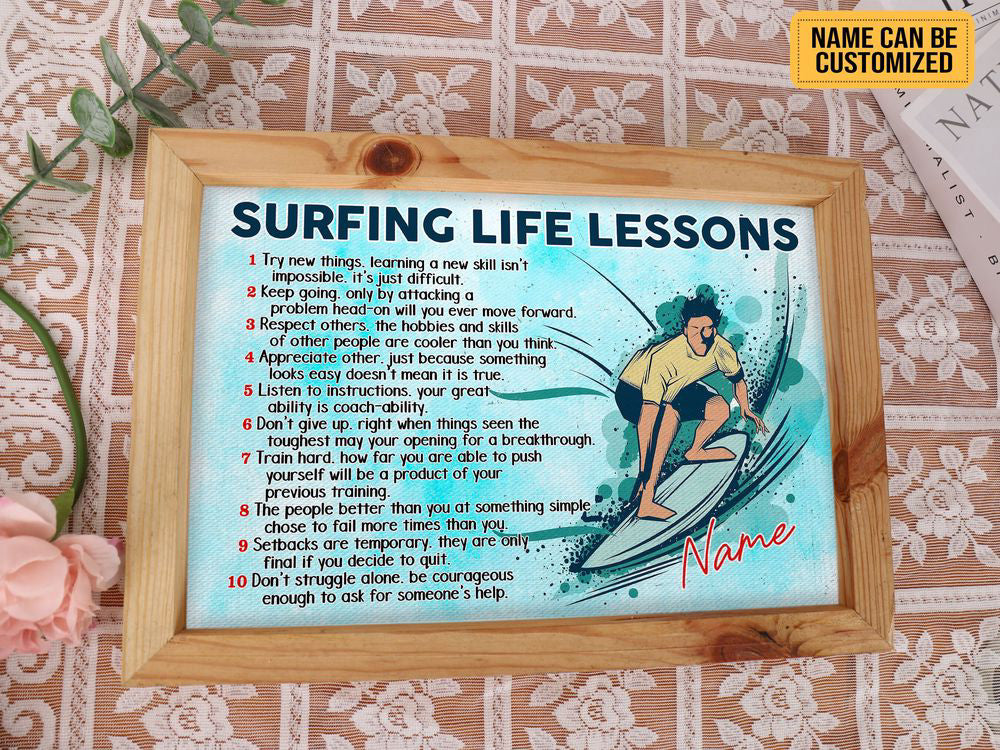 NAME CAN BE
CUSTOMIZED
SURFING LIFE LESSONS
1 Try new things. learning a new skill isn't
impossible. it's just difficult.
2 Keep going. only by attacking a
problem head-on will you ever move forward.
3 Respect others. the hobbies and skills
of other people are cooler than you think.
4 Appreciate other. just because something
looks easy doesn't mean it is true.
5 Listen to instructions. your great
ability is coach-ability.
6 Don't give up. right when things seen the
toughest may your opening for a breakthrough.
7 Train hard. how far you are able to push
yourself will be a product of your
previous training.
8 The people better than you at something simple
chose to fail more times than you.
9 Setbacks are temporary. they are only
final if you decide to quit.
10 Don't struggle alone. be courageous
enough to ask for someone's help.
Name